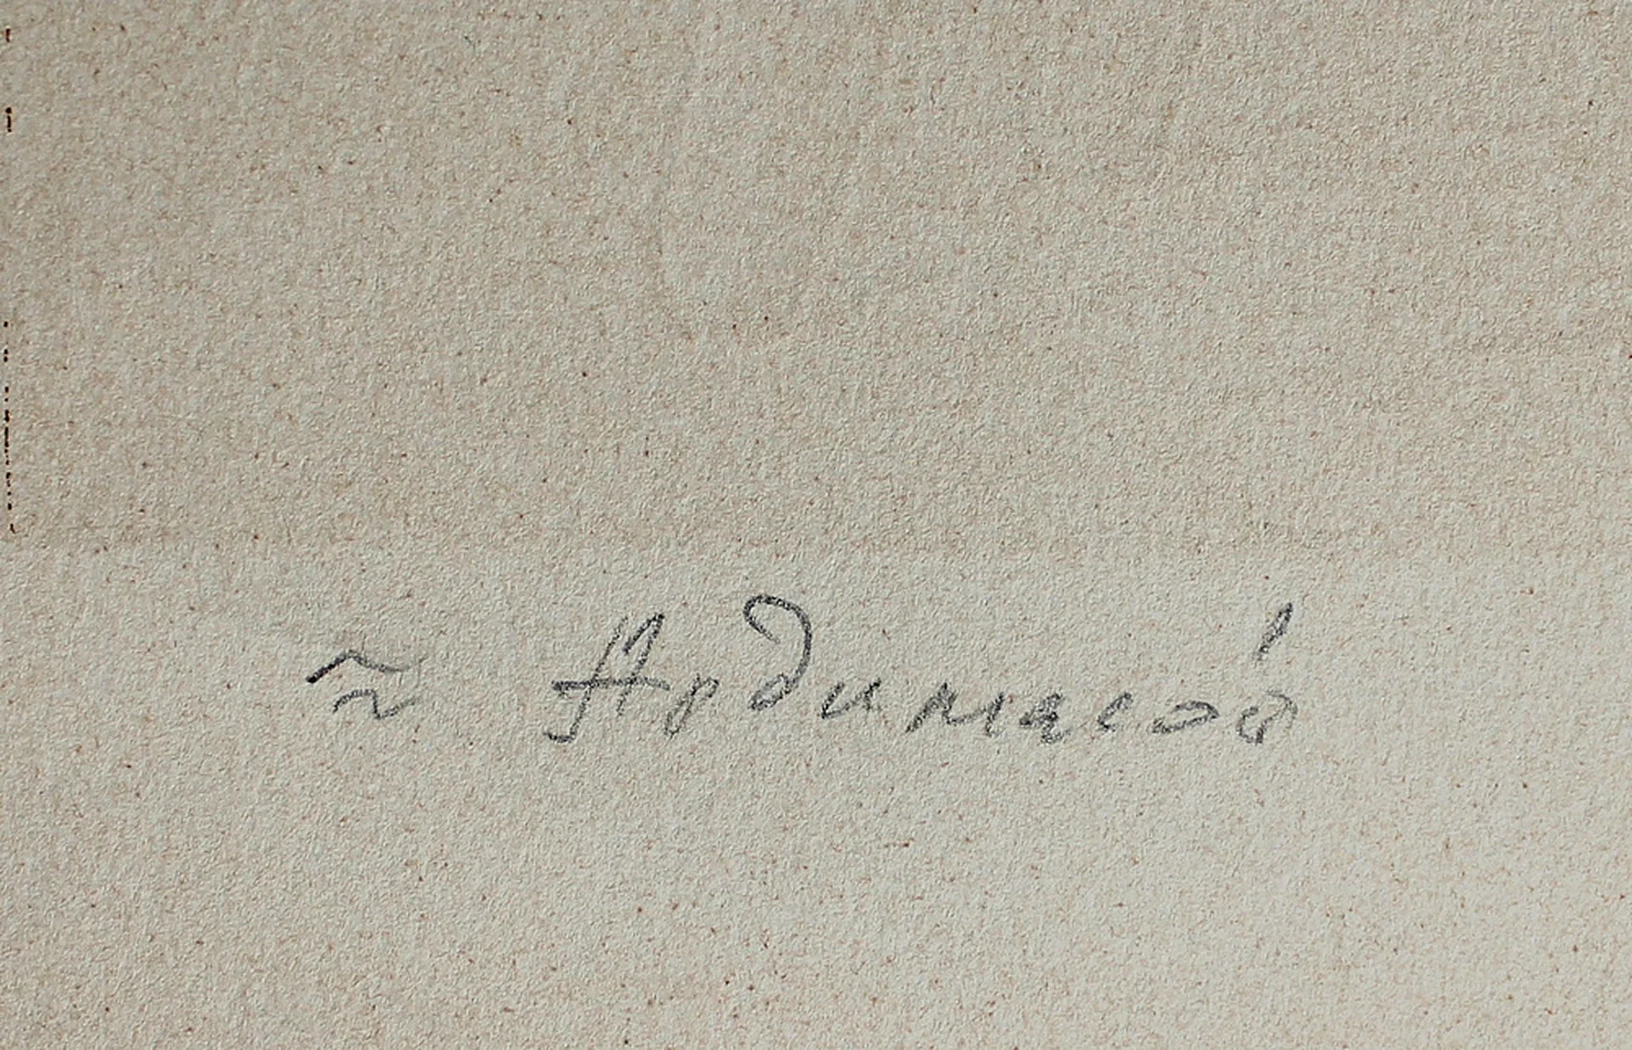 Ардимасов